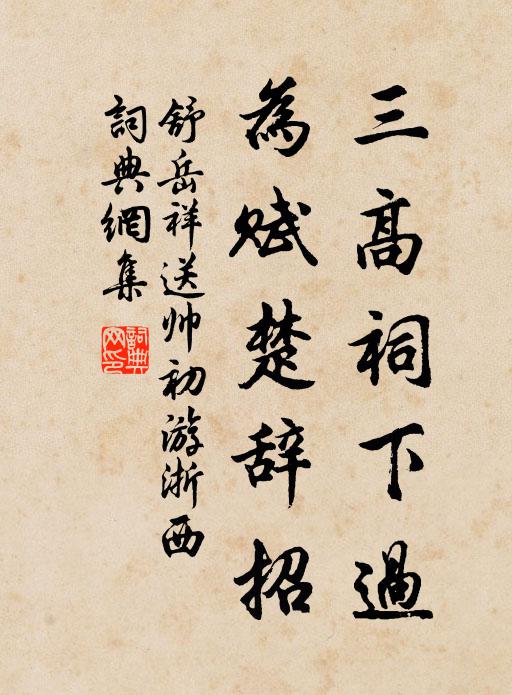 三高祠下過
為賦楚辞招
舒岳祥送帅初游浙西
詞典網集
詞典網印